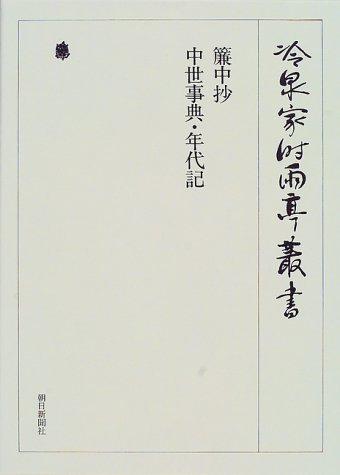 冷泉家时雨亭叢書
簾中抄
中世事典・年代記
朝日新聞社